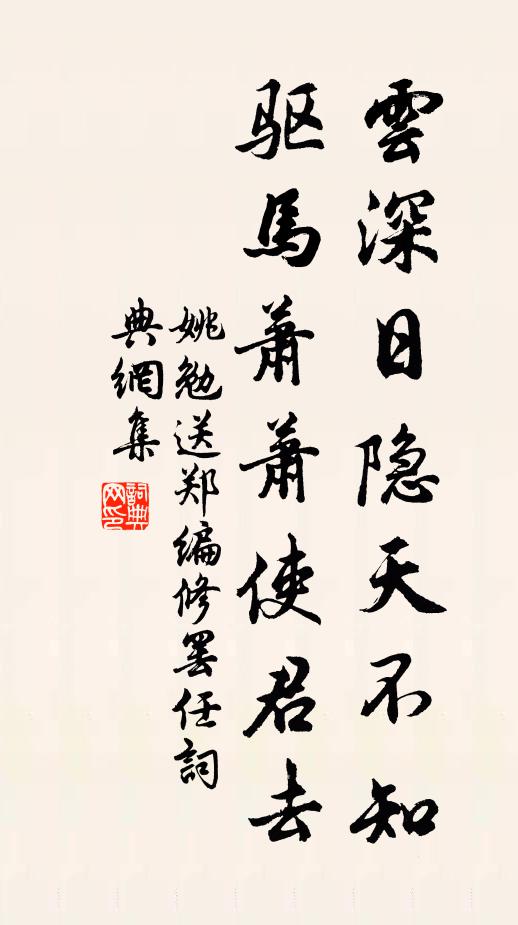 雲深日隐天不知
驱馬蕭蕭使君去
姚勉送郑编修罢任詞
典網集
詞典网印